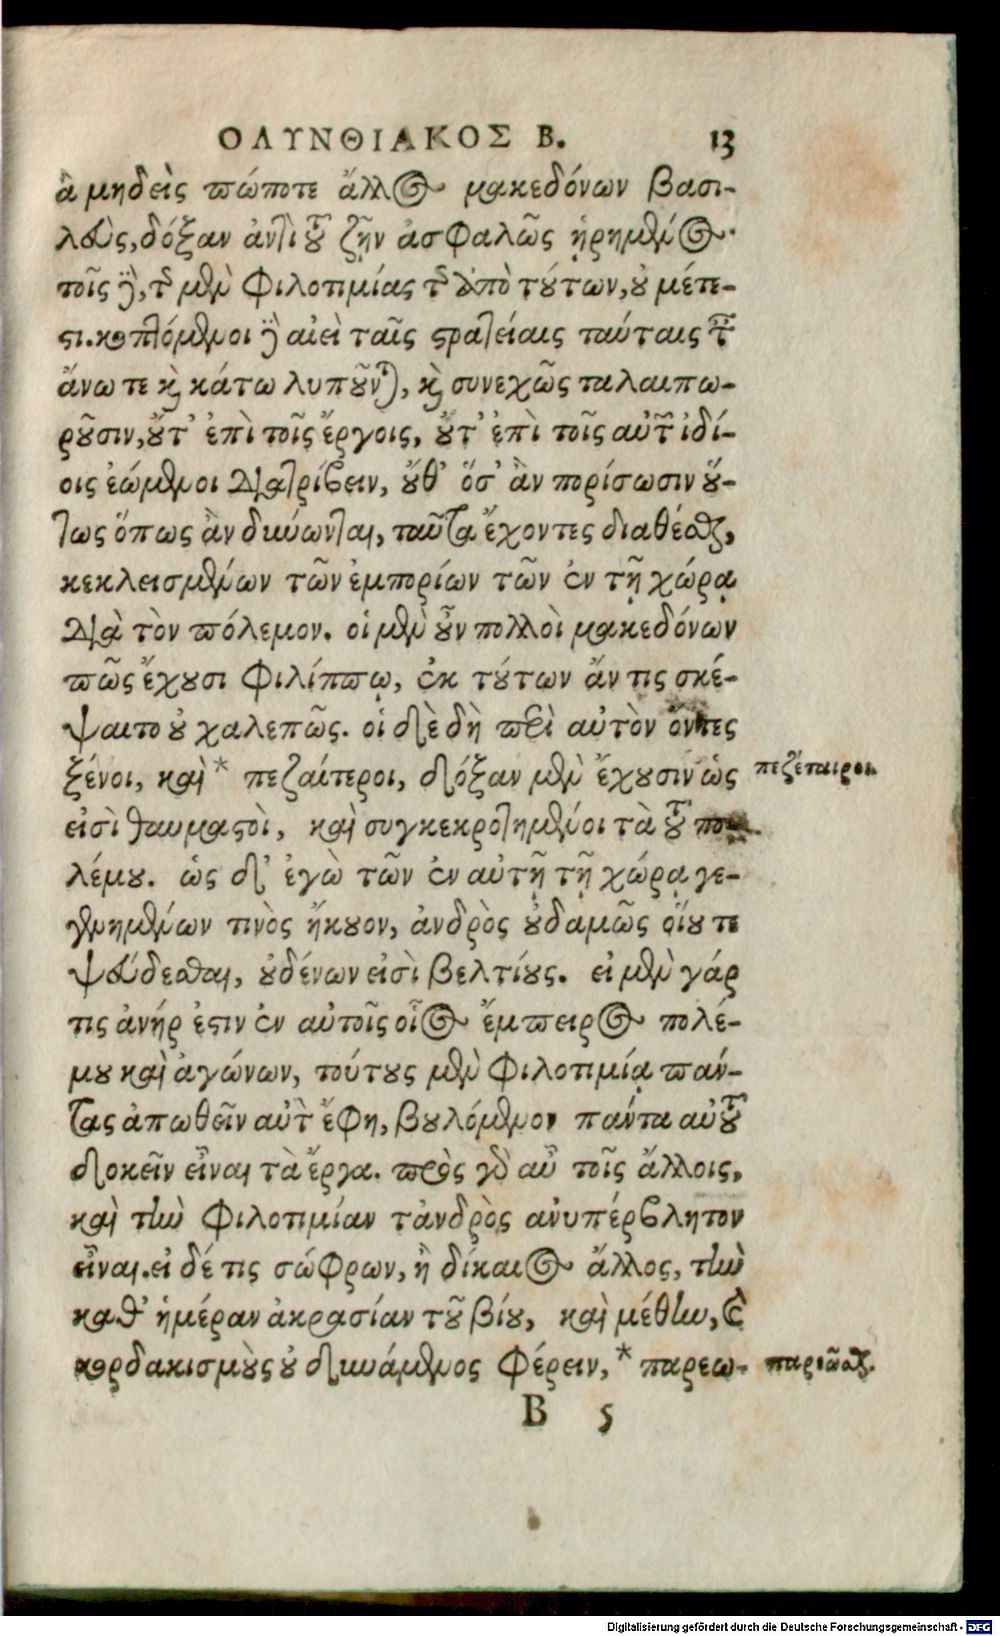 ΟΛΥΝΘΙΑΚΟΣ Β. 13
ἃ μηδεὶς πώποτε ἄλλος μακεδόνων βασι-
λεὺς, δόξαν ἀντὶ τοῦ ζῆν ἀσφαλῶς ᾑρημένος.
τοῖς δὲ, τῆς μὲν φιλοτιμίας τῆς ἀπὸ τούτων, οὐ μέτε-
στι. κοπτόμενοι δὲ αἰεὶ ταῖς στρατείαις ταύταις ταῖς
ἄνω τε καὶ κάτω λυποῦνται, καὶ συνεχῶς ταλαιπω-
ροῦσιν, οὔτ' ἐπὶ τοῖς ἔργοις, οὔτ' ἐπὶ τοῖς αὑτῶν ἰδί-
οις ἐώμενοι διατρίβειν, οὔθ' ὅσ' ἂν πορίσωσιν οὕ-
τως ὅπως ἂν δύνωνται, ταῦτα ἔχοντες διαθέσθαι,
κεκλεισμένων τῶν ἐμπορίων τῶν ἐν τῇ χώρᾳ
διὰ τὸν πόλεμον. οἱ μὲν οὖν πολλοὶ μακεδόνων
πῶς ἔχουσι Φιλίππῳ, ἐκ τούτων ἄν τις σκέ-
ψαιτο οὐ χαλεπῶς. οἱ δὲ δὴ περὶ αὐτὸν ὄντες
ξένοι, καὶ * πεζαίτεροι, δόξαν μὲν ἔχουσιν ὡς
πεζέταιροι.
εἰσὶ θαυμαστοὶ, καὶ συγκεκροτημένοι τὰ τοῦ πο-
λέμου. ὡς δ' ἐγὼ τῶν ἐν αὐτῇ τῇ χώρᾳ γε-
γενημένων τινὸς ἤκουον, ἀνδρὸς οὐδαμῶς οἵου τε
ψεύδεσθαι, οὐδένων εἰσὶ βελτίους. εἰ μὲν γάρ
τις ἀνήρ ἐστιν ἐν αὐτοῖς οἷος ἔμπειρος πολέ-
μου καὶ ἀγώνων, τούτους μὲν φιλοτιμίᾳ πάν-
τας ἀπωθεῖν αὐτὸν ἔφη, βουλόμενον πάντα αὑτοῦ
δοκεῖν εἶναι τὰ ἔργα. πρὸς γὰρ αὖ τοῖς ἄλλοις,
καὶ τὴν φιλοτιμίαν τἀνδρὸς ἀνυπέρβλητον
εἶναι. εἰ δέ τις σώφρων, ἢ δίκαιος ἄλλος, τὴν
καθ' ἡμέραν ἀκρασίαν τοῦ βίου, καὶ μέθην, καὶ
κορδακισμοὺς οὐ δυνάμενος φέρειν, * παρεω-
παριῶσθαι.
B 5
Digitalisierung gefördert durch die Deutsche Forschungsgemeinschaft - DFG